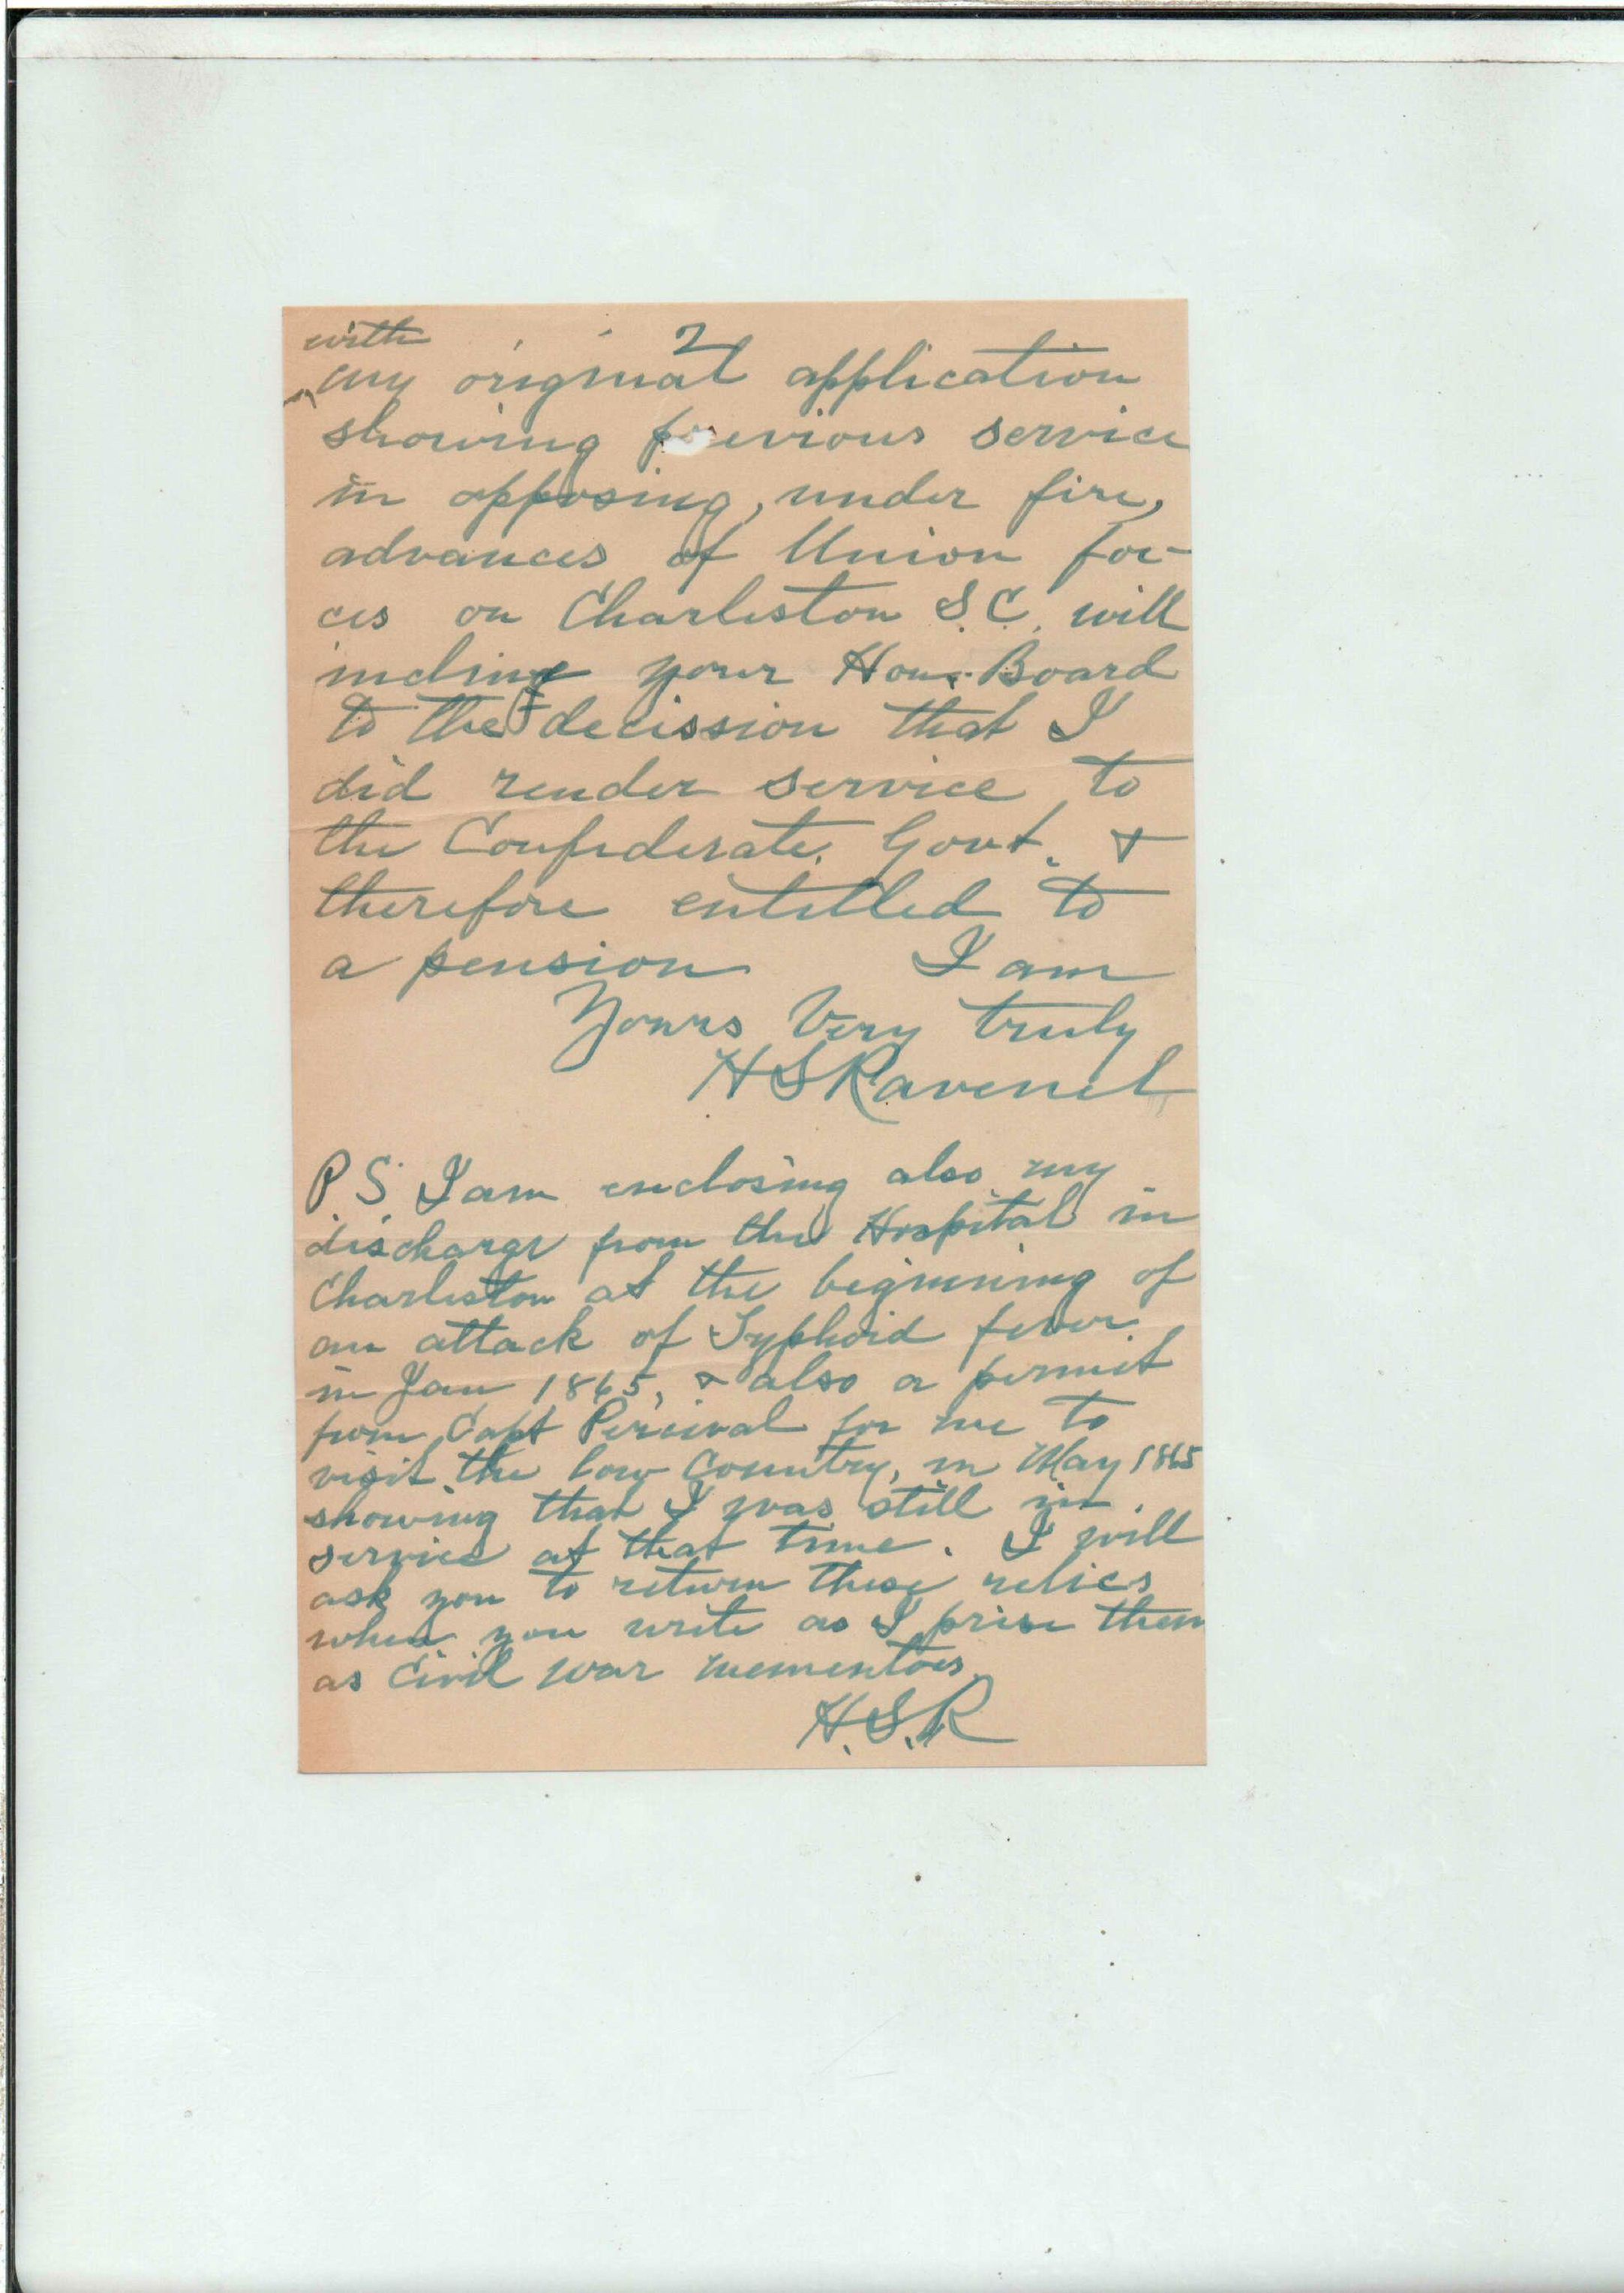 2
with
my original application
showing previous service
in opposing, under fire,
advances of Union for-
ces on Charleston S.C. will
incline your Hon. Board
to the decission that I
did render service to
the Confederate Govt. &
therefore entitled to
a pension I am
Yours Very truly
H S Ravenel
P.S. I am enclosing also my
discharge from the Hospital in
Charleston at the beginning of
an attack of Typhoid fever
in Jan 1865, & also a permit
from Capt Percival for me to
visit the low Country, in May 1865
showing that I was still in
service at that time. I will
ask you to return these relics
when you write as I prise them
as Civil war mementoes.
H.S.R